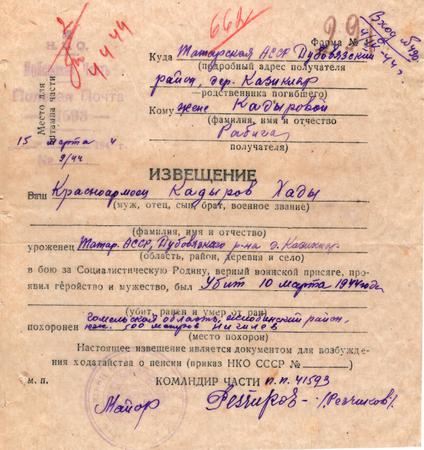 Н. К. О.
Полевая Почта
41593
Место для штампа части
15 марта 4
№ 9/44
4.4.44
662
99
Форма №
Вход №490
4.4.44 г.
Куда Татарская АССР Дубовязский
(подробный адрес получателя
район, дер.
—родственника погибшего)
Кому жене Кадыровой
(фамилия, имя и отчество
получателя)
ИЗВЕЩЕНИЕ
Ваш Красноармеец Кадыров Хады
(муж, отец, сын, брат, военное звание)
(фамилия, имя и отчество)
уроженец Татар. АССР, Дубовязского р-на д.
(область, район, деревня и село)
в бою за Социалистическую Родину, верный воинской присяге, про-
явил геройство и мужество, был Убит 10 марта 1944 года
(убит, ранен и умер от ран)
Гомельская область, Жлобинский район,
похоронен 500 метров
(место похорон)
Настоящее извещение является документом для возбужде-
ния ходатайства о пенсии (приказ НКО СССР № )
м. п.
КОМАНДИР ЧАСТИ п.п. 41593
Майор Резчиков /Резчиков/